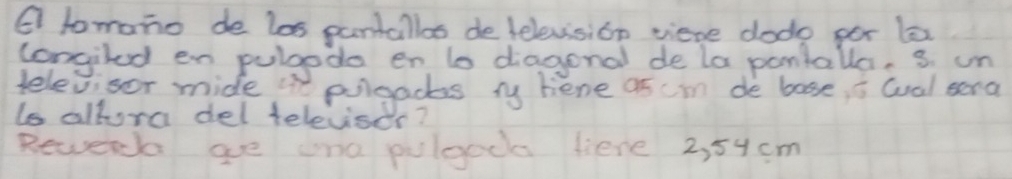 El tomaño de las pantallas de televisión viene dado por la
longitud en pulgada en la diagonal de la pantalla. Si un
televisor mide pulgadas y tiene 95 cm de base, ¿ Cual sera
la altura del televisor?
Recuerda que una pulgada tiene 2,54 cm